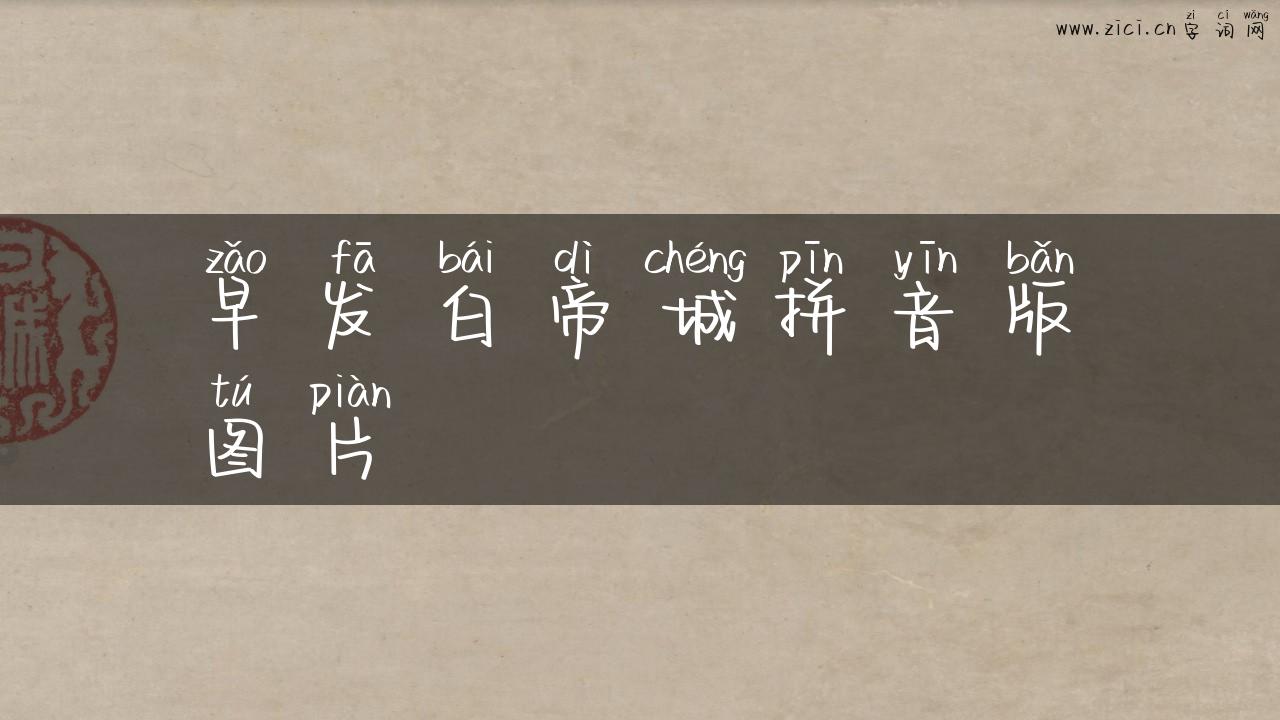 zì cí wǎng
www.zici.cn 字词网
zǎo fā bái dì chéng pīn yīn bǎn
早发白帝城拼音版
tú piàn
图片